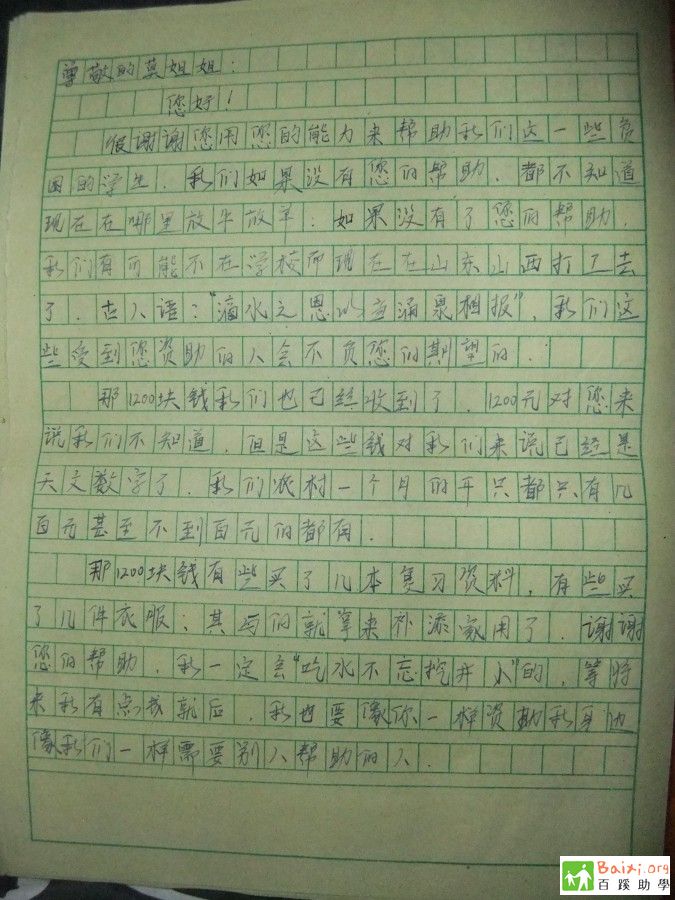 尊敬的莫姐姐：
您好！
很谢谢您用您的能力来帮助我们这一些危
困的学生．我们如果没有您的帮助．都不知道
现在在哪里放牛放羊；如果没有了您的帮助．
我们有可能不在学校而现在在山东山西打工去
了．古人语："滴水之恩以涌泉相报"，我们这
些受到您资助的人会不负您的期望的．
那1200块钱我们也已经收到了．1200元对您来
说我们不知道．但是这些钱对我们来说已经是
天文数字了．我们农村一个月的开只都只有几
百元甚至不到百元的都有．
那1200块钱有些买了几本复习资料，有些买
了几件衣服；其与的就拿来补添家用了．谢谢
您的帮助．我一定会"吃水不忘挖井人"的．等将
来我有点成就后．我也要像你一样资助我身边
像我们一样需要别人帮助的人．
Baixi.org
百蹊助學